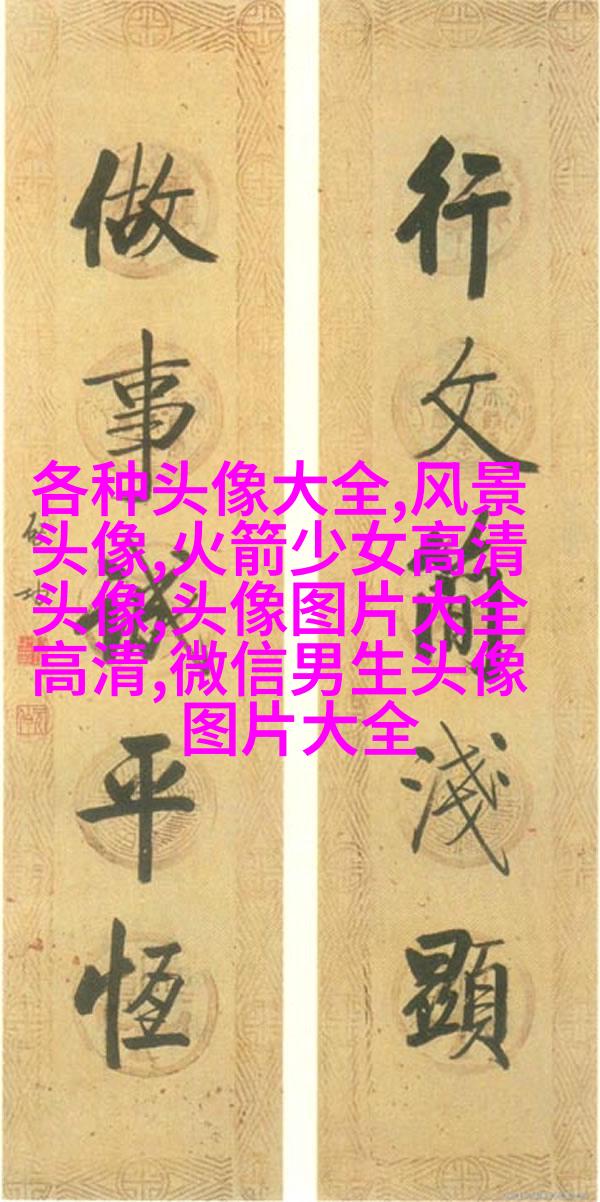 行文淺顯
做事平恆
各种头像大全,风景
头像,火箭少女高清
头像,头像图片大全
高清,微信男生头像
图片大全